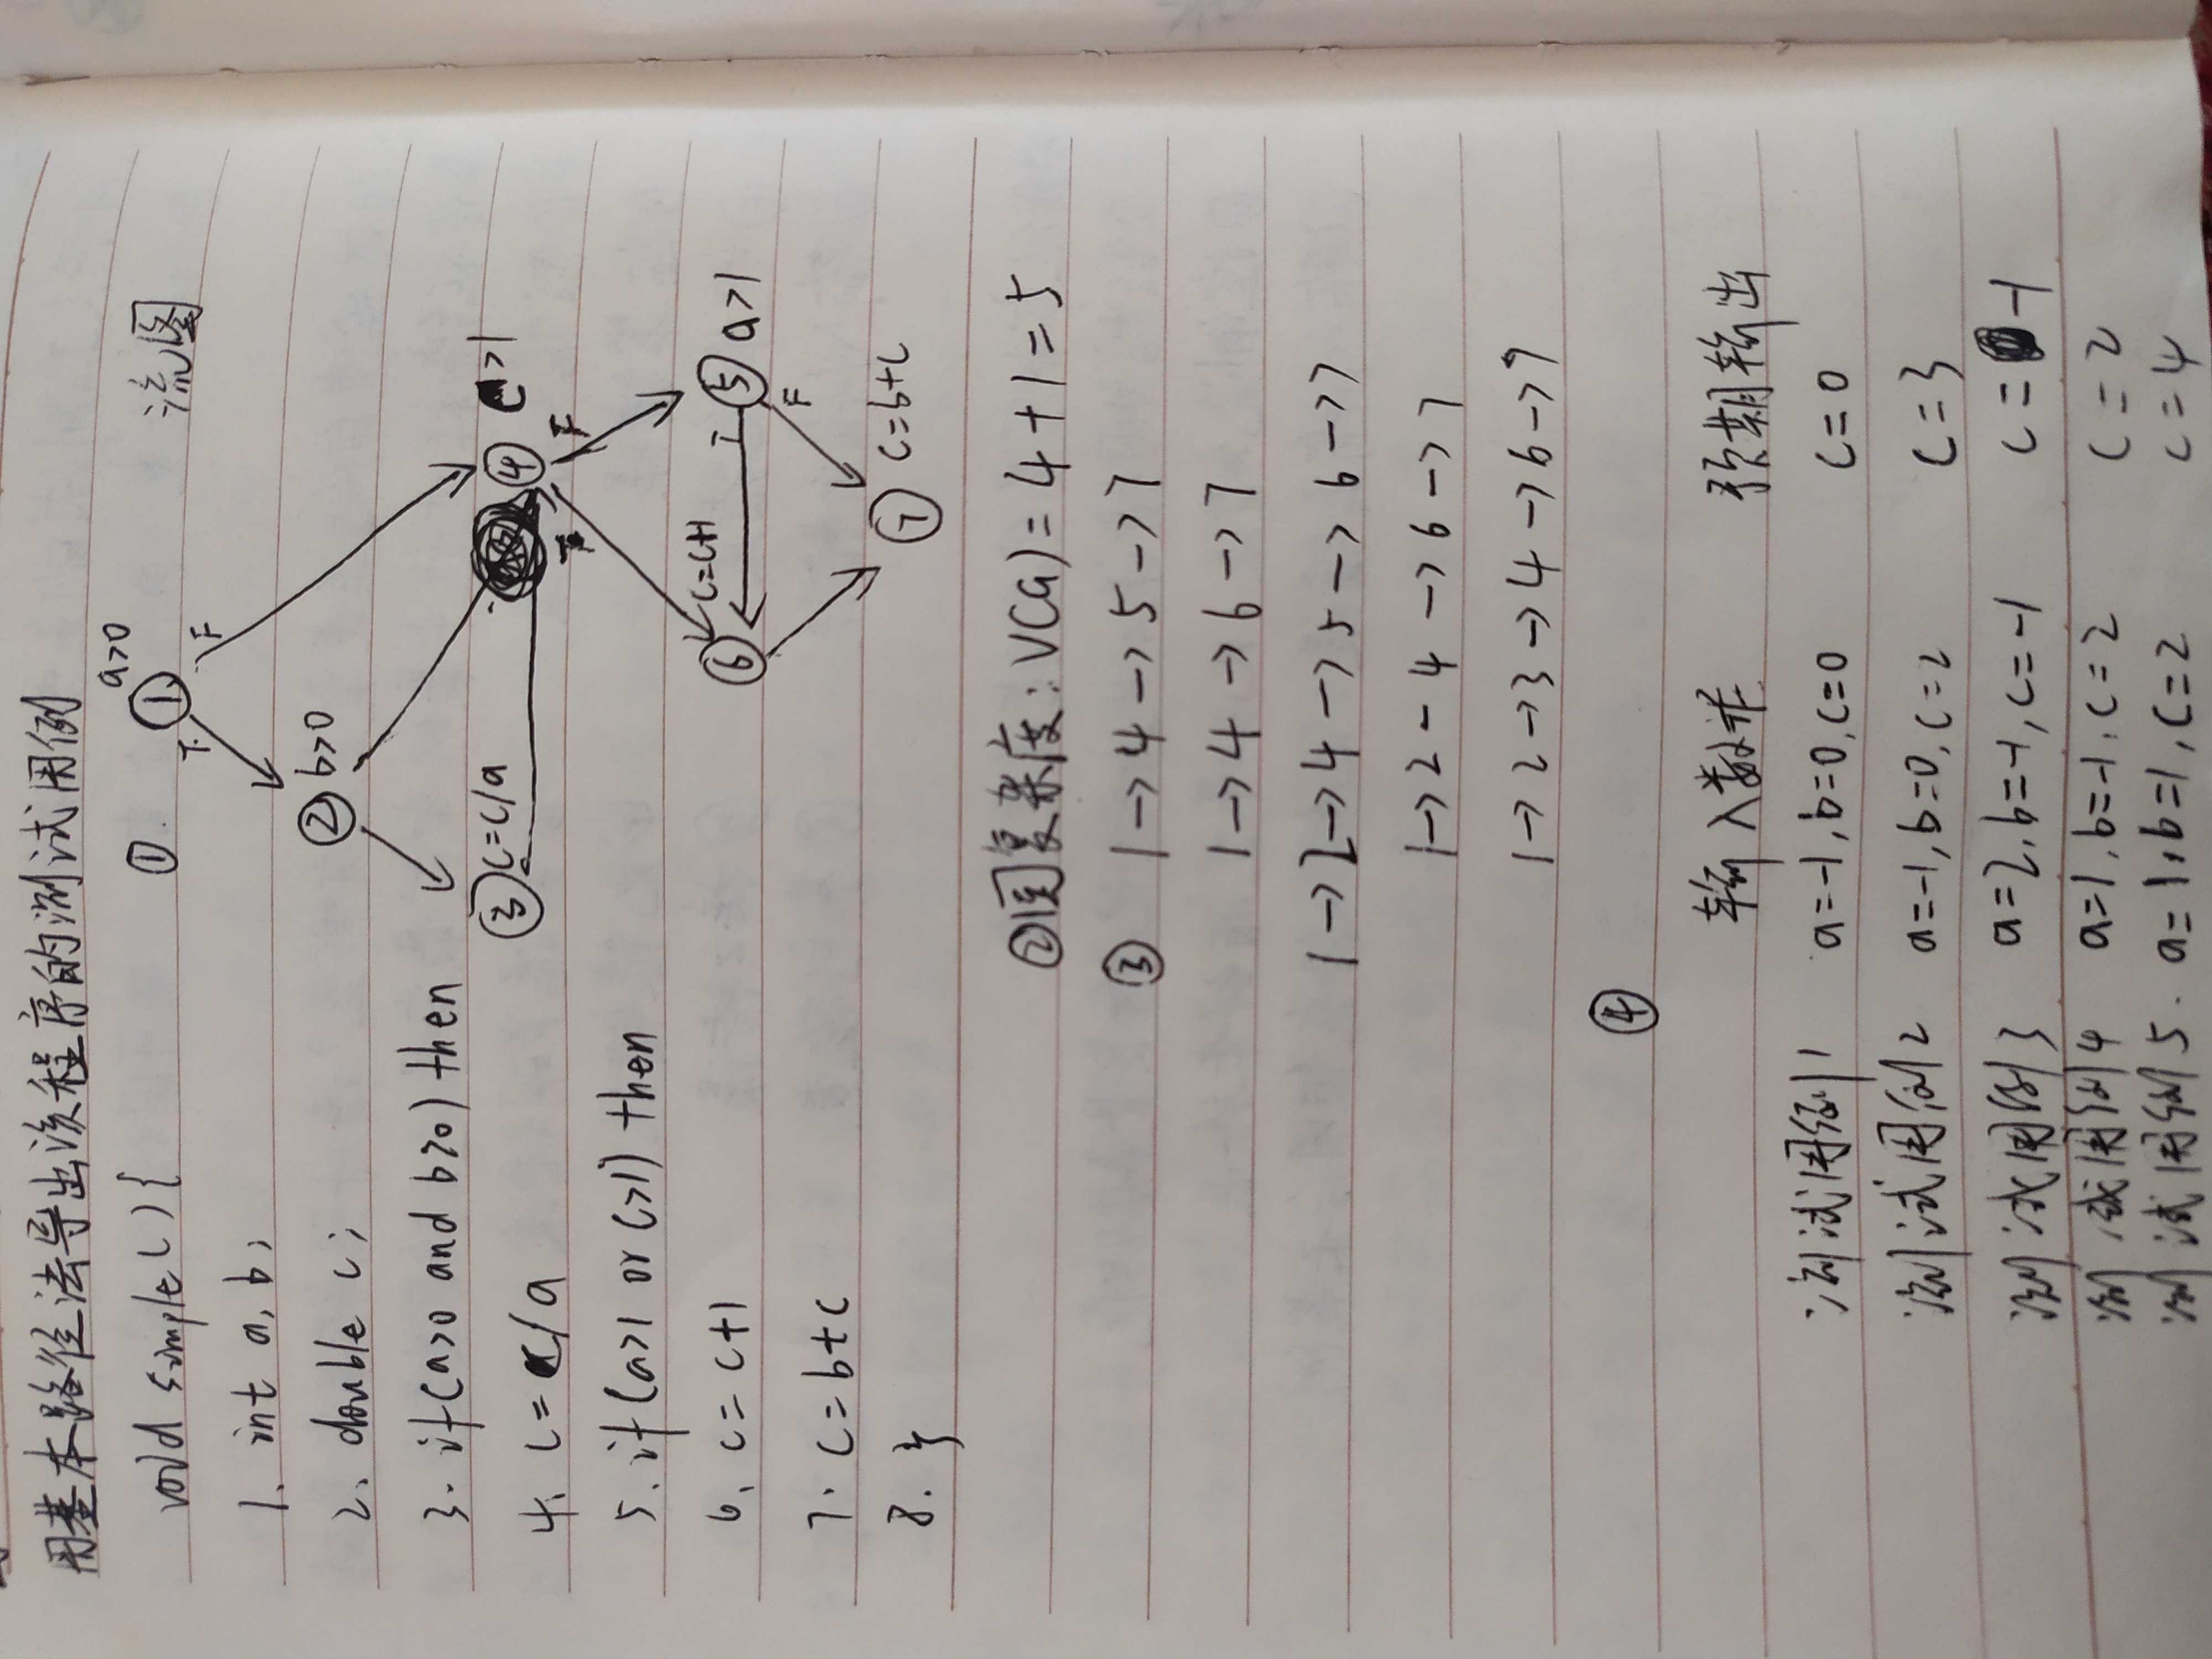 用基本路径法导出该程序的测试用例
void simple(){
1. int a,b;
2. double c;
3. if(a>0 and b>0) then
4. c=c/a
5. if(a>1 or c>1) then
6. c=c+1
7. c=b+c
8. }
① 流图
a>0
①
T F
② b>0
③ c=c/a
④ c>1
T F
c=c+1
⑥
T
⑤ a>1
F
⑦ c=b+c
②圈复杂度:V(G)=4+1=5
③ 1->4->5->7
1->4->6->7
1->2->4->5->6->7
1->2-4->6->7
1->2->3->4->6->7
④
输入数据 预期输出
测试用例1 a=-1,b=0,c=0 c=0
测试用例2 a=-1,b=0,c=2 c=3
测试用例3 a=2,b=-1,c=-1 c=-1
测试用例4 a=1,b=-1,c=2 c=2
测试用例5. a=1,b=1,c=2 c=4